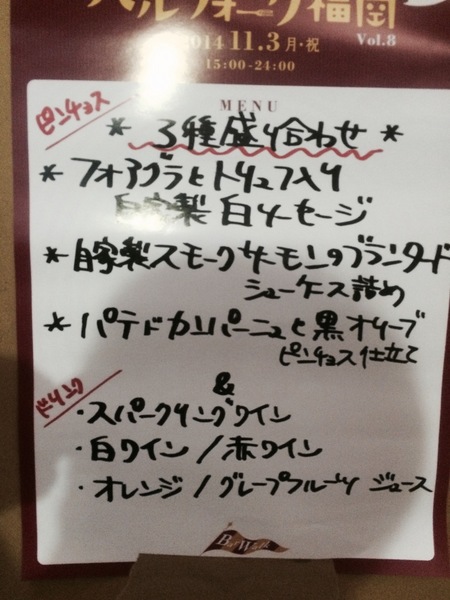 バルウォーク福岡
2014 11.3 月・祝 Vol.8
15:00-24:00
MENU
ピンチョス
* 3種盛り合わせ *
* フォアグラとトリュフ入り
自家製 白ソーセージ
* 自家製スモークサーモンのブランダード
シューケース詰め
* パテドカンパーニュと黒オリーブ
ピンチョス仕立て
&
ドリンク
・スパークリングワイン
・白ワイン / 赤ワイン
・オレンジ / グレープフルーツ ジュース